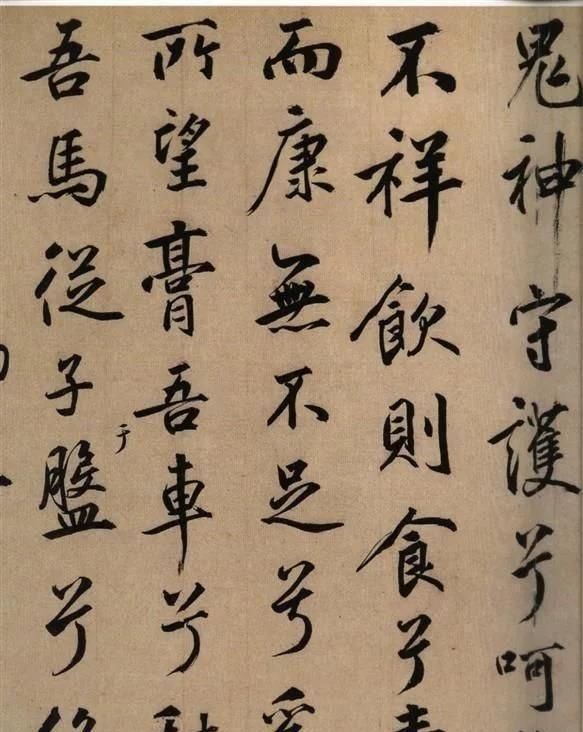 鬼神守護兮呵
不祥飲則食兮
而康無不足兮
所望膏吾車兮
吾馬從子盤兮
于